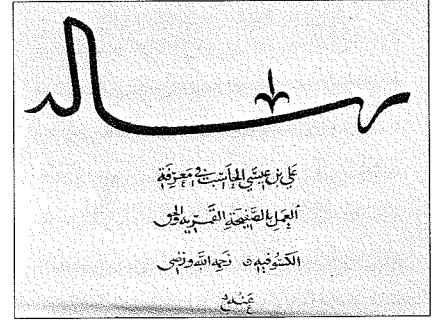 رسالة
علي بن عيسى الحاسب في معرفة
العمل بالصفيحة القمرية والحق
الكسوفية رحمه الله ورضي
عنه